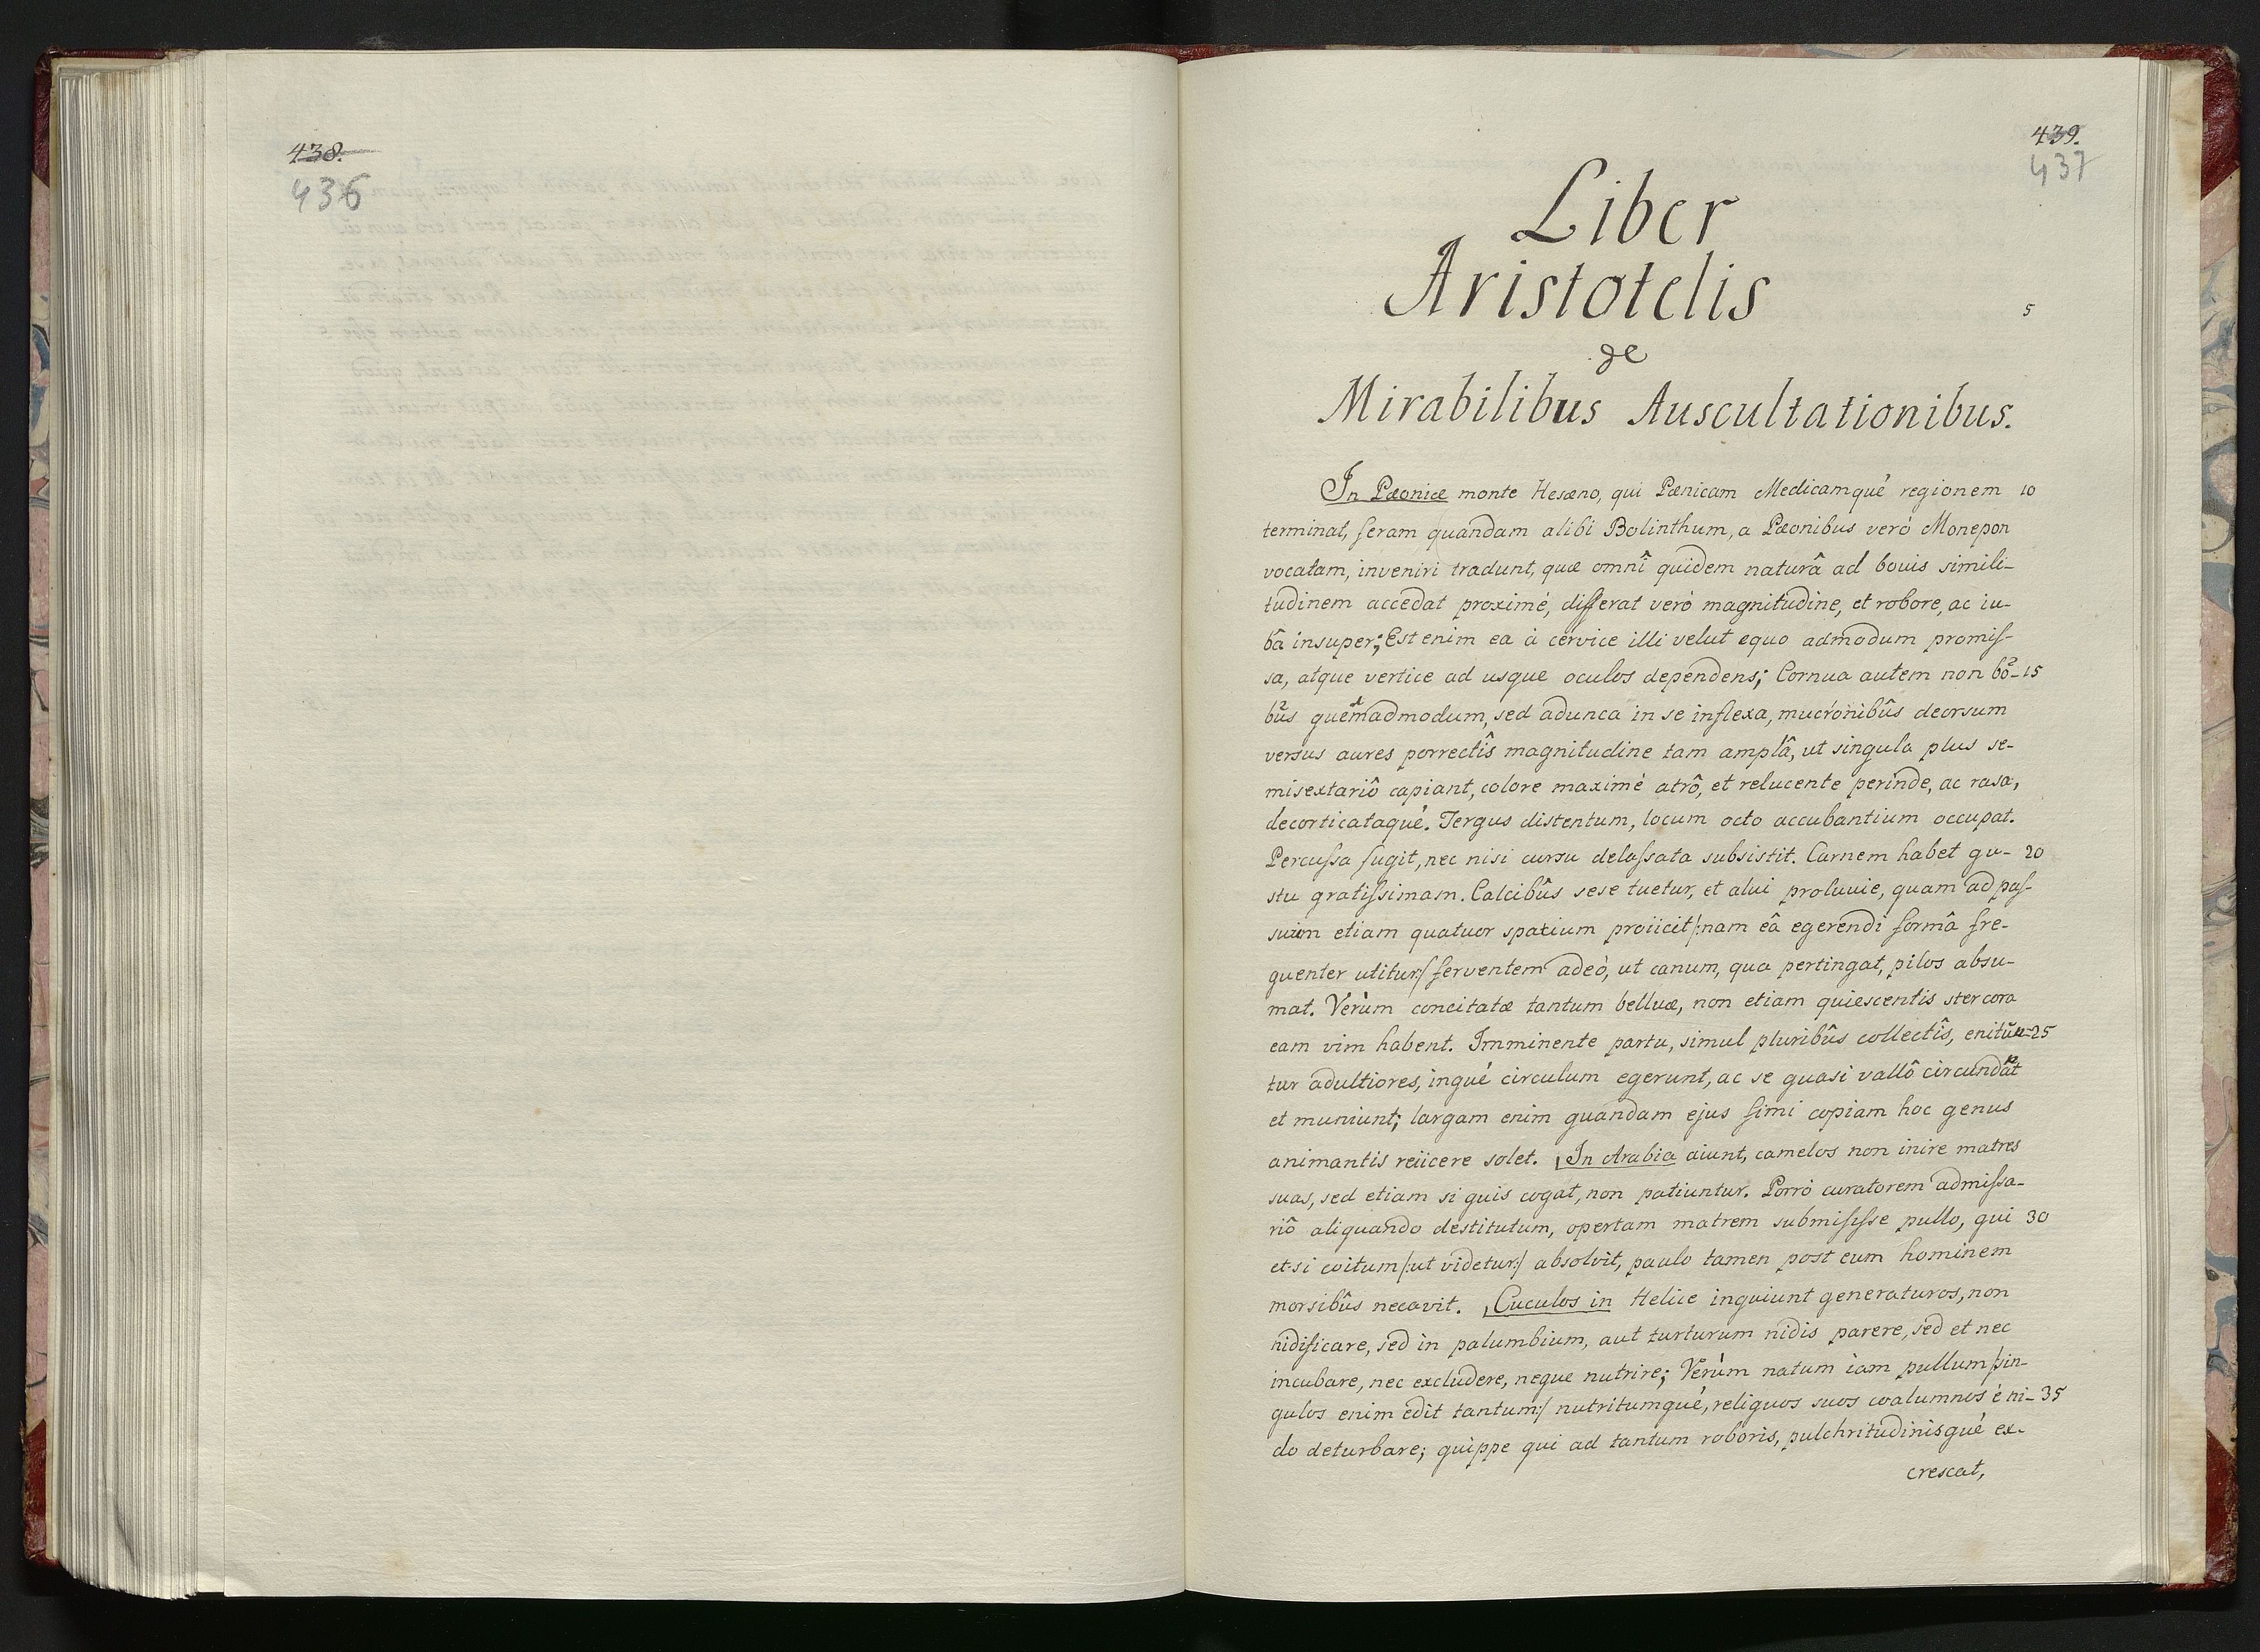 438.
436
439.
437
Liber
Aristotelis
5
de
Mirabilibus Auscultationibus.
In Pæoniæ monte Hesæno, qui Pænicam Medicamqué regionem 10
terminat, feram quandam alibi Bolinthum, a Pæonibus verò Monepon
vocatam, inveniri tradunt, quæ omnî quidem naturâ ad bouis simili-
tudinem accedat proximé, differat verò magnitudine, et robore, ac iu-
bâ insuper; Est enim ea à cervice illi velut equo admodum promis-
sa, atque vertice ad usque oculos dependens; Cornua autem non bô- 15
bûs quemadmodum, sed adunca in se inflexa, mucronibûs deorsum
versus aures porrectîs magnitudine tam amplâ, ut singula plus se-
misextariô capiant, colore maximè atrô, et relucente perinde, ac rasa,
decorticataqué. Tergus distentum, locum octo accubantium occupat.
Percussa fugit, nec nisi cursu delassata subsistit. Carnem habet gu- 20
stu gratissimam. Calcibûs sese tuetur, et alui proluuie, quam ad pas-
suum etiam quatuor spatium proiicit /:nam eâ egerendi formâ fre-
quenter utitur:/ ferventem adeò, ut canum, qua pertingat, pilos absu-
mat. Verùm concitatæ tantum belluæ, non etiam quiescentis stercora
eam vim habent. Imminente partu, simul pluribûs collectîs, enitûn- 25
tur adultiores, inqué circulum egerunt, ac se quasi vallô circundât
et muniunt; largam enim quandam ejus fimi copiam hoc genus
animantis reiicere solet. In Arabia aiunt, camelos non inire matres
suas, sed etiam si quis cogat, non patiuntur. Porrò curatorem admissa-
riô aliquando destitutum, opertam matrem submisisse pullo, qui 30
et-si coitum /:ut videtur:/ absolvit, paulo tamen post eum hominem
morsibûs necavit. Cuculos in Helice inquiunt generaturos, non
nidificare, sed in palumbium, aut turturum nidis parere, sed et nec
incubare, nec excludere, neque nutrire; Verùm natum iam pullum /:sin-
gulos enim edit tantum:/ nutritumqué, reliquos suos coalumnos è ni- 35
do deturbare; quippe qui ad tantum roboris, pulchritudinisqué ex-
crescat,